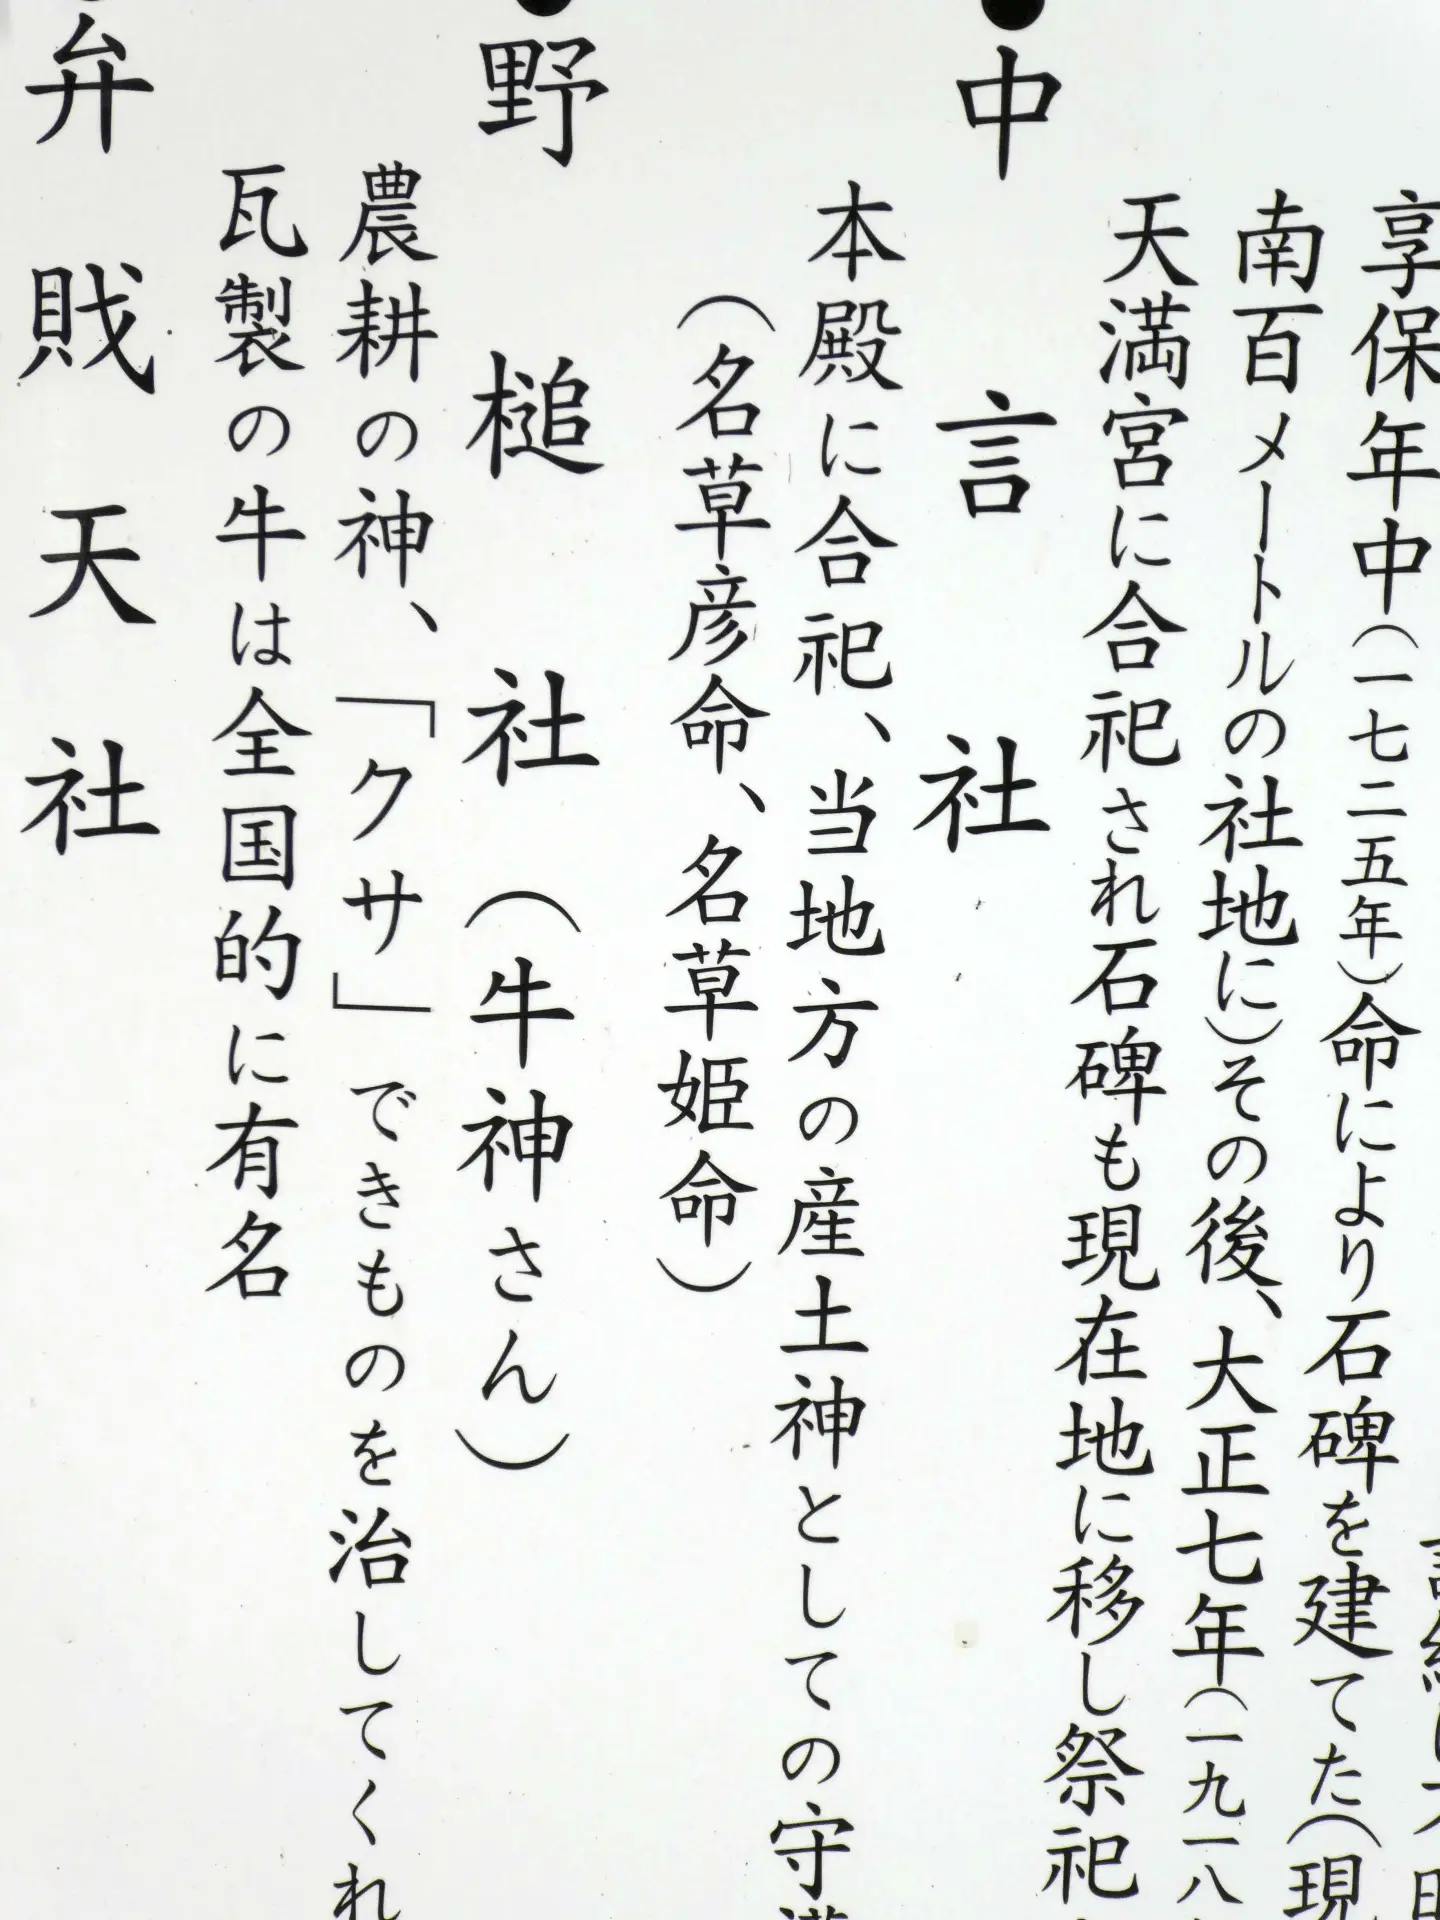 享保年中(一七二五年)命により石碑を建てた(現
南百メートルの社地に)その後、大正七年(一九一八
天満宮に合祀され石碑も現在地に移し祭祀
●中言社
本殿に合祀、当地方の産土神としての守
(名草彦命、名草姫命)
●野槌社(牛神さん)
農耕の神、「クサ」できものを治してくれ
瓦製の牛は全国的に有名
弁戝天社